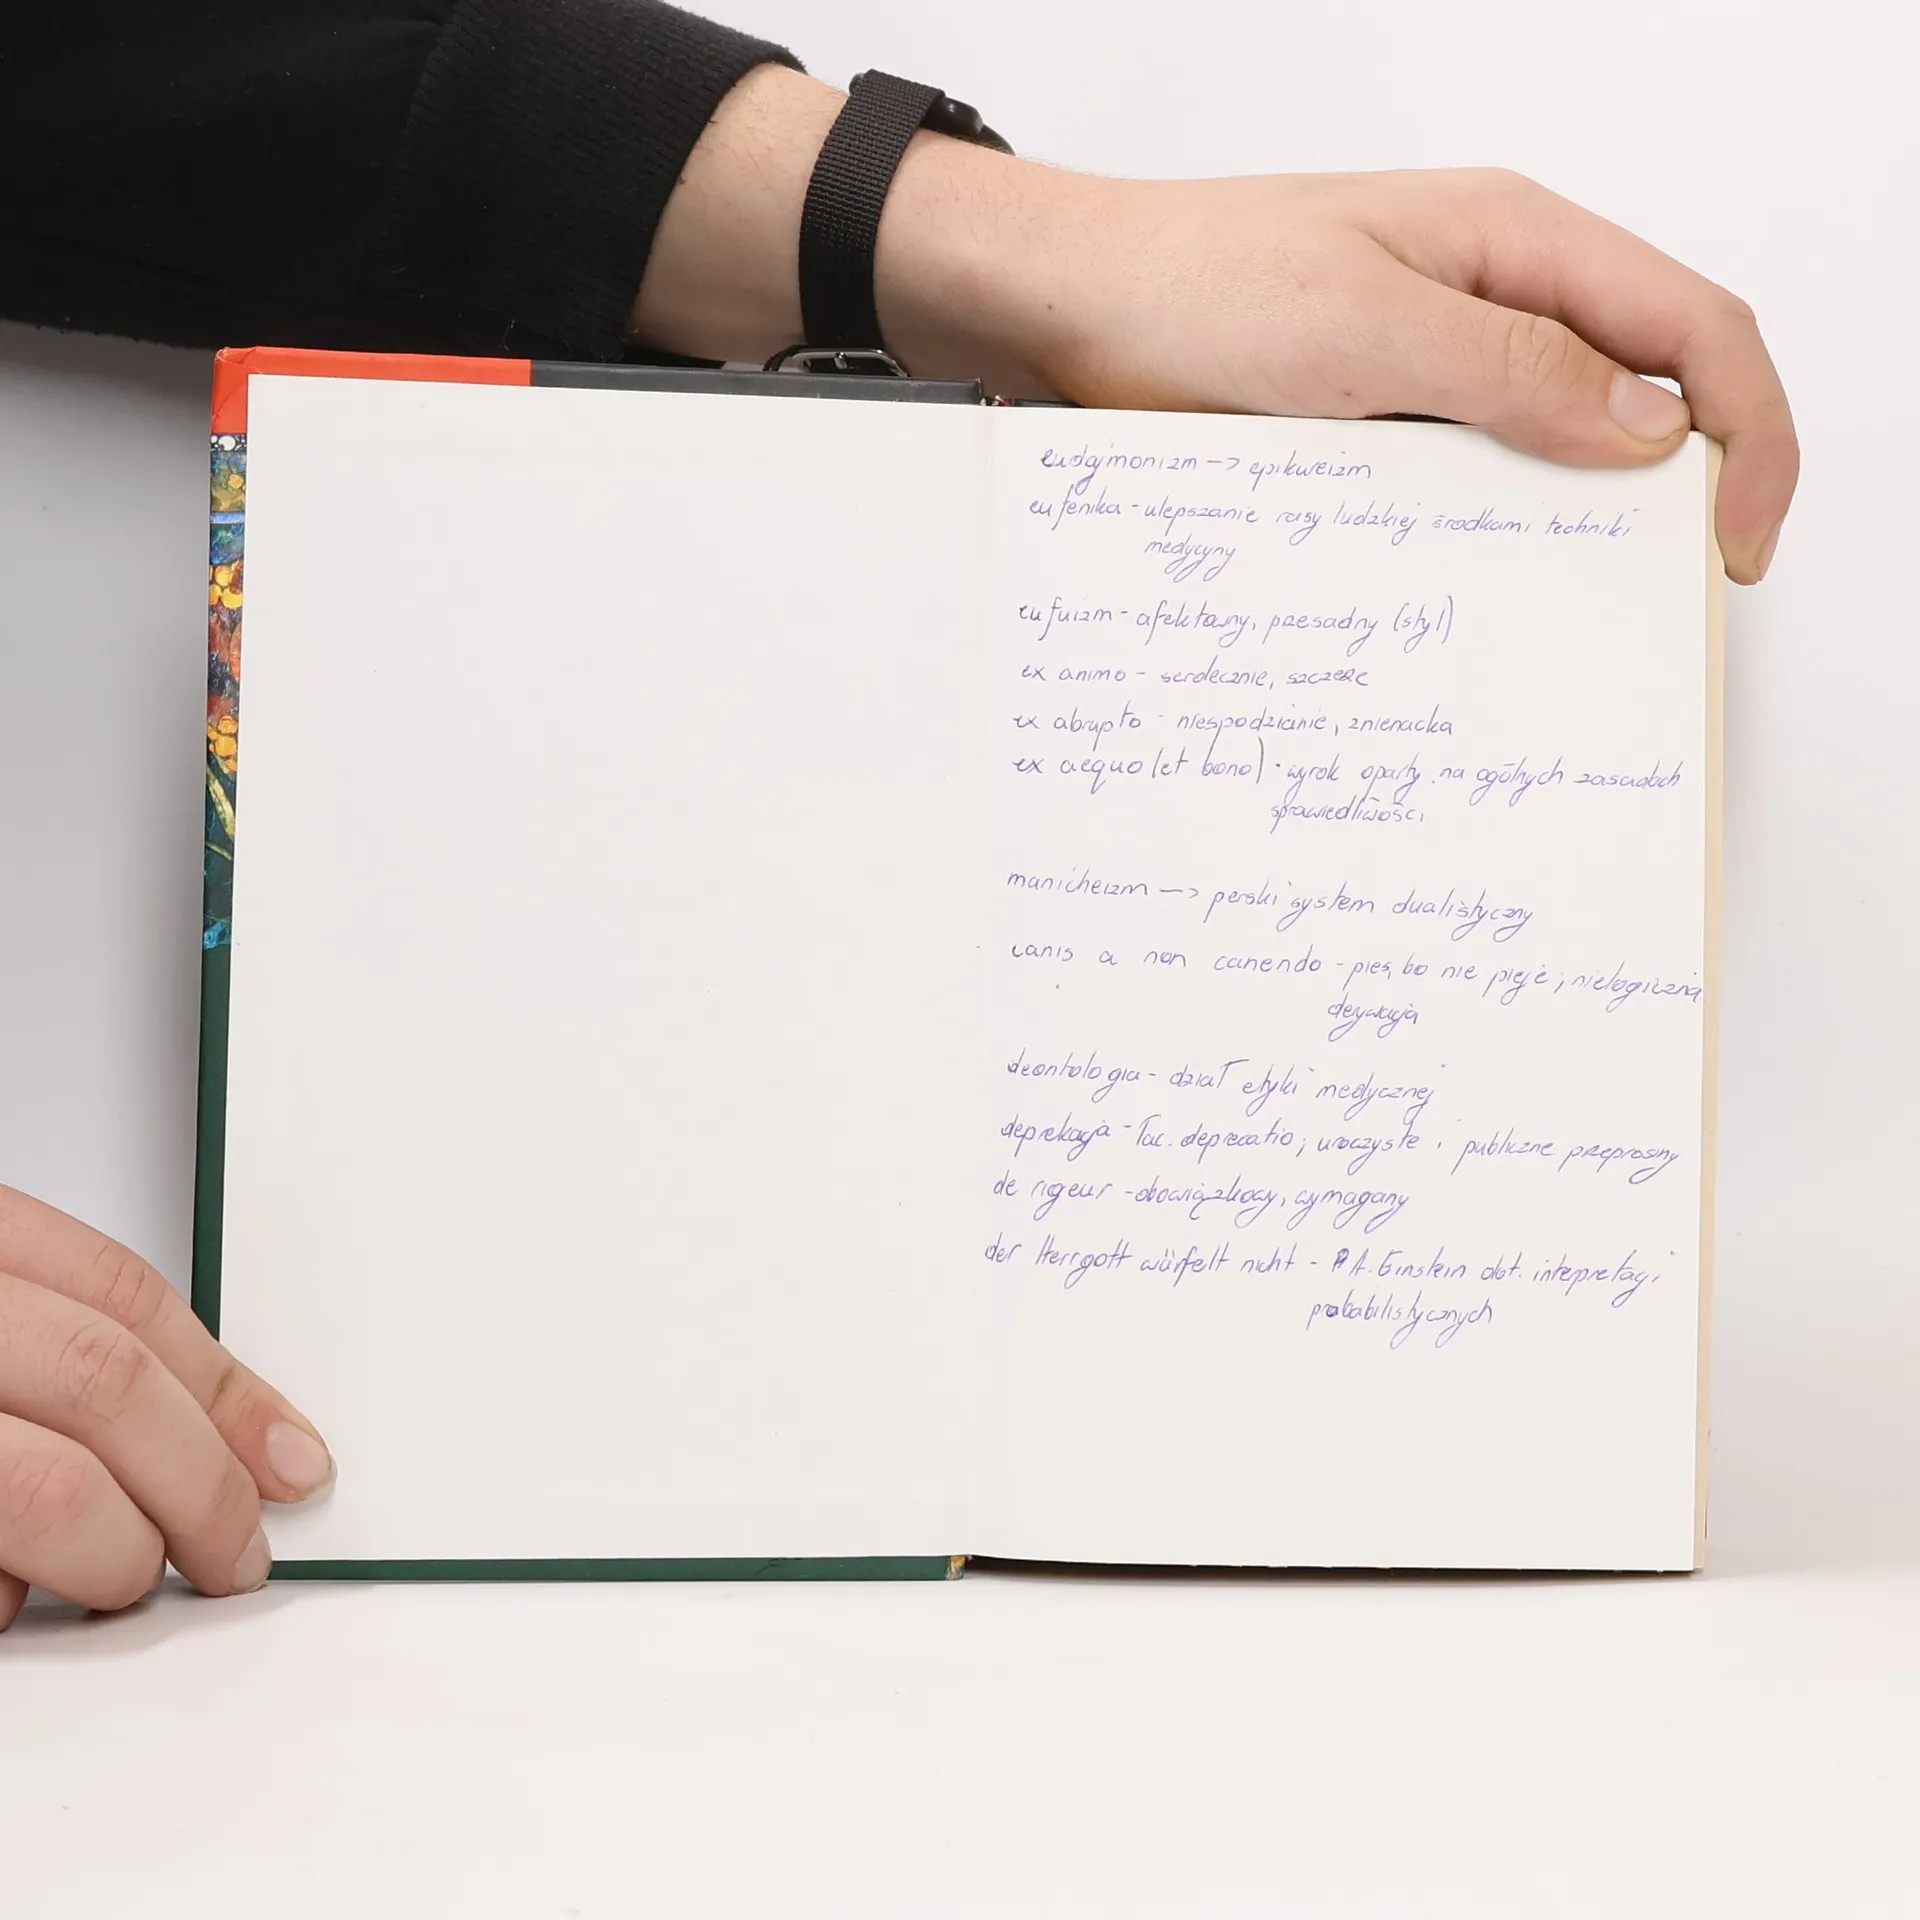 eudajmonizm -> epikureizm
eufenika - ulepszanie rasy ludzkiej środkami techniki
medycyny
eufuizm - afektowny, przesadny (styl)
ex animo - serdecznie, szczerze
ex abrupto - niespodzianie, znienacka
ex aequo (et bono) - wyrok oparty na ogólnych zasadach
sprawiedliwości
manicheizm -> perski system dualistyczny
canis a non canendo - pies, bo nie pieje; nielogiczna
derywacja
deontologia - dział etyki medycznej
deprekacja - łac. deprecatio; uroczyste i publiczne przeprosiny
de rigeur - obowiązkowy, wymagany
der Herrgott würfelt nicht - A. Einstein dot. interpretacji
probabilistycznych